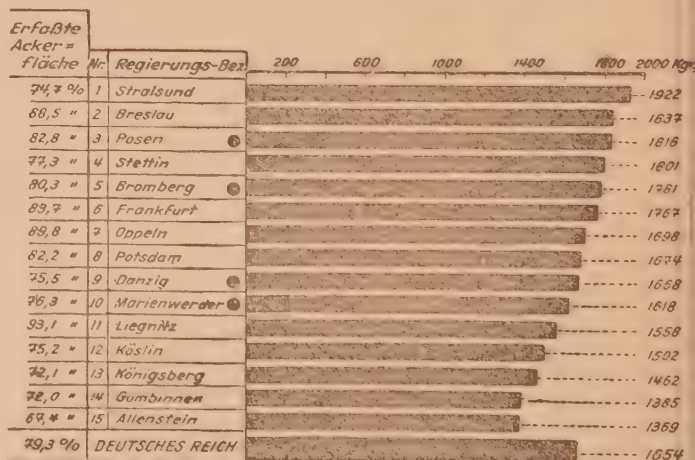 Erfaßte
Acker=
fläche Nr. Regierungs-Bez. 200 600 1000 1400 1800 2000 Kgr.
74,7 % 1 Stralsund 1922
88,5 " 2 Breslau 1837
82,8 " 3 Posen 1816
77,3 " 4 Stettin 1801
80,3 " 5 Bromberg 1781
89,7 " 6 Frankfurt 1767
89,8 " 7 Oppeln 1698
82,2 " 8 Potsdam 1674
75,5 " 9 Danzig 1668
76,3 " 10 Marienwerder 1618
93,1 " 11 Liegnitz 1558
75,2 " 12 Köslin 1502
72,1 " 13 Königsberg 1462
72,0 " 14 Gumbinnen 1385
" 15 Allenstein 1369
79,3 % DEUTSCHES REICH 1654